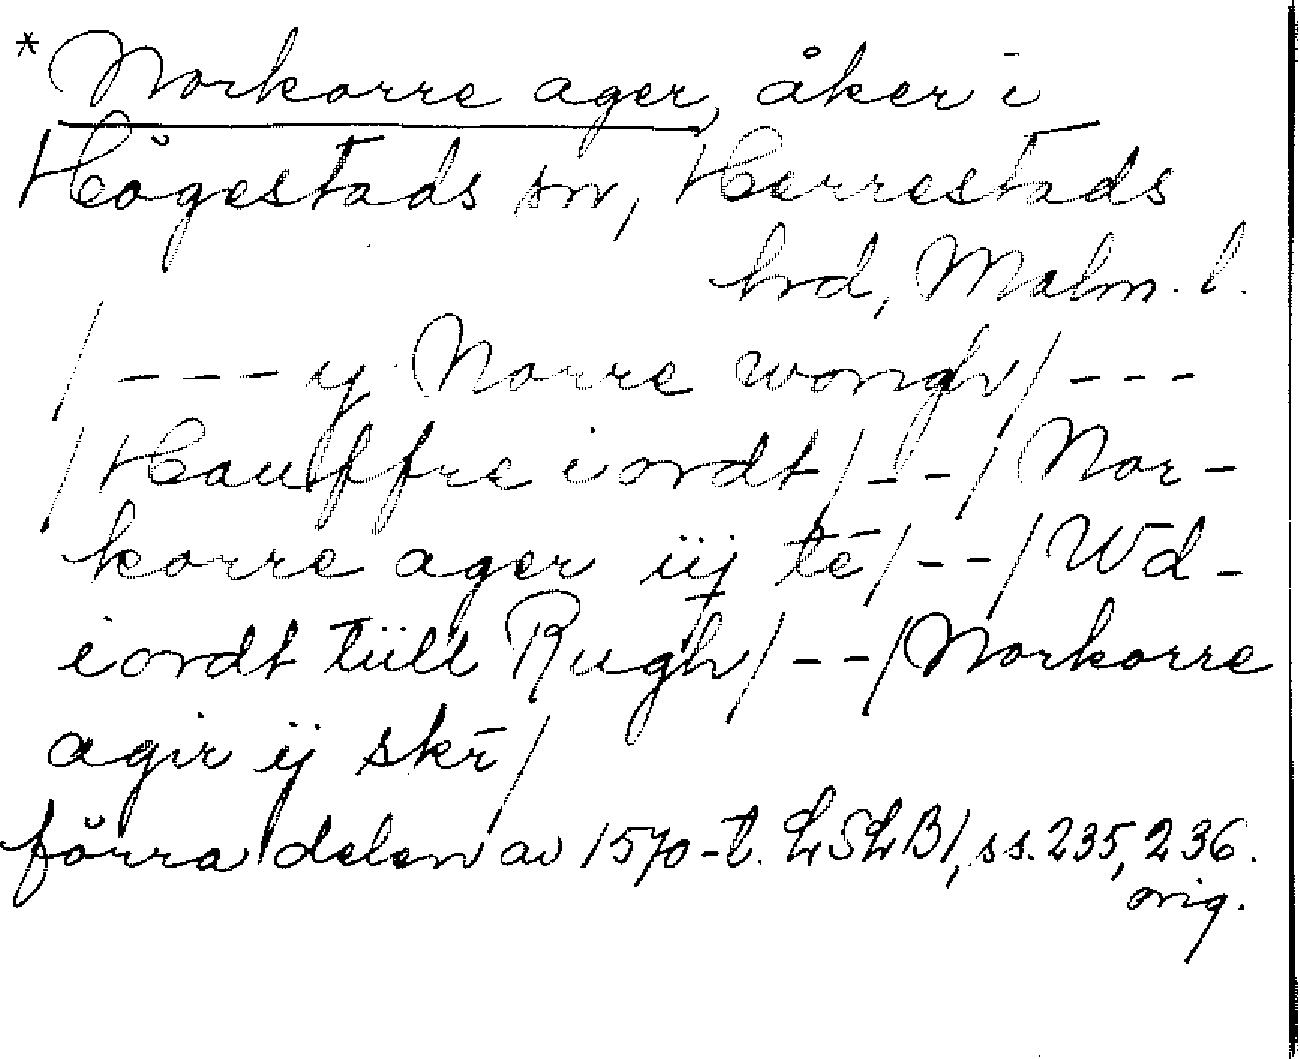 * Norkorre ager, åker i
Högestads sn, Herrestads
hrd, Malm. l.
/ --- y Norre wongh / ---
/ Hauffre iordt / -- / Nor-
korre ager iij tē / -- / Wd-
iordt tüll Rugh / -- / Norkorre
agir ij skr̄ /
förra delen av 1570-t. LSLB1, ss. 235, 236.
orig.